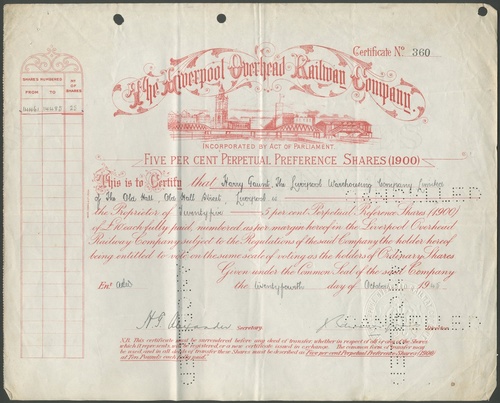 Certificate No. 360
The Liverpool Overhead Railway Company.
INCORPORATED BY ACT OF PARLIAMENT.
FIVE PER CENT PERPETUAL PREFERENCE SHARES (1900)
SHARES NUMBERED
FROM
TO
No OF SHARES
25
This is to Certify that Harry Gaunt, The Liverpool Warehousing Company Limited
of The Old Hall, Old Hall Street, Liverpool
the Proprietor of Twentyfive 5 per cent Perpetual Preference Shares (1900)
of £10 each fully paid, numbered as per margin hereof in the Liverpool Overhead
Railway Company, subject to the Regulations of the said Company, the holder hereof
being entitled to vote on the same scale of voting as the holders of Ordinary Shares
Given under the Common Seal of the said Company
the twentyfourth day of October 19
Ent.
Secretary.
Director.
CANCELLED
CANCELLED
N.B. This certificate must be surrendered before any deed of transfer, whether in respect of all or any of the Shares
which it represents can be registered, or a new certificate issued in exchange. The common form of transfer may
be used and in all deeds of transfer these Shares must be described as Five per cent Perpetual Preference Shares (1900)
of Ten Pounds each fully paid.